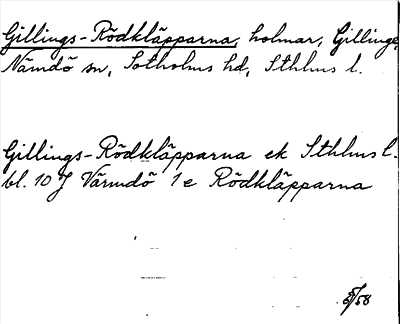 Gillings-Rödkläpparna, holmar, Gillinge,
Nämdö sn, Sotholms hd, Sthlms l.
Gillings-Rödkläpparna ek Sthlms l.
bl. 10 J Värmdö 1 e Rödkläpparna
/58